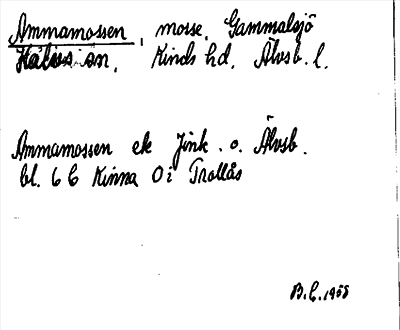 Ammamossen, mosse, Gammalsjö
sn, Kinds hd, Älvsb. l.
Ammamossen ek Jönk. o. Älvsb.
bl. 6 C Kinna 0 i Trollås
B.C. 1958